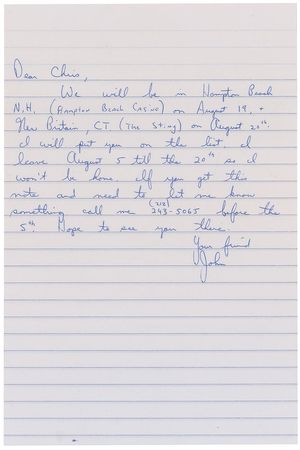 Dear Chris,
We will be in Hampton Beach
N.H. (Hampton Beach Casino) on August 19. +
New Britain, CT (The Sting) on August 20th.
I will put you on the list. I
leave August 5 till the 20th so I
won't be home. If you get this
note and need to let me know
something call me (212) 243-5065 before the
5th Hope to see you there.
Your friend
John